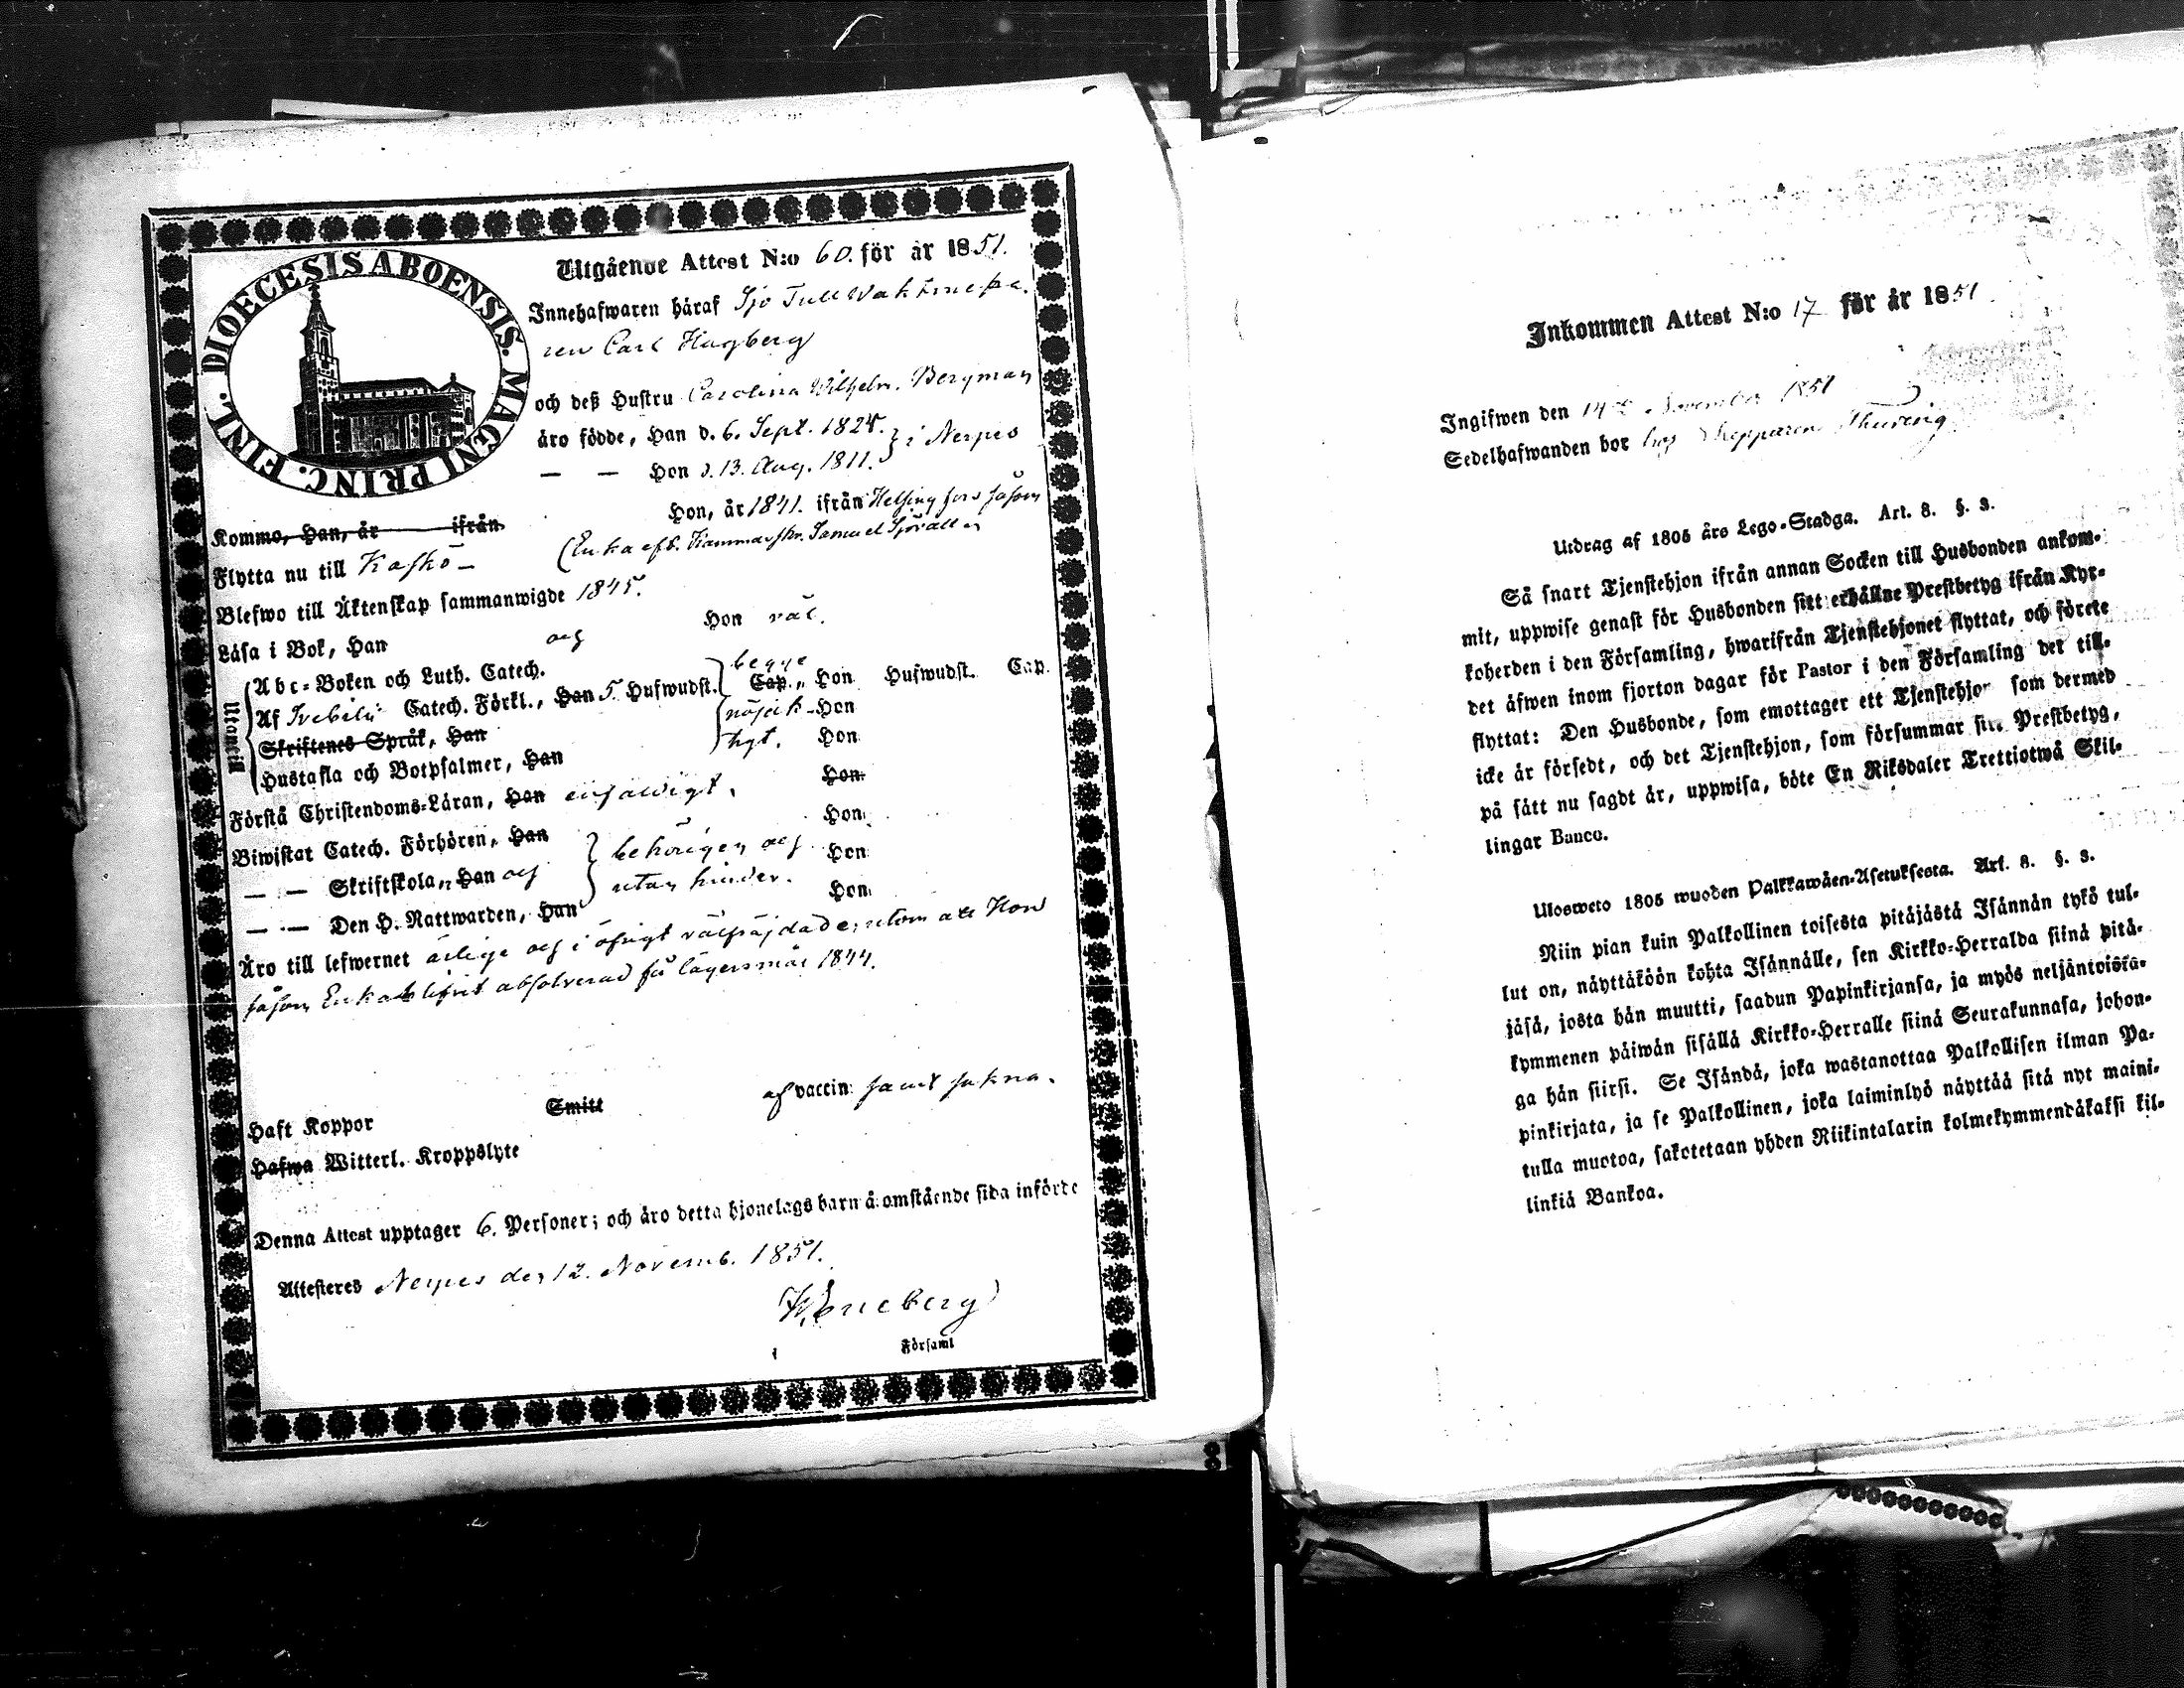 DIOECESIS ABOENSIS. MAGNI PRINC. FINL.
Utgående Attest N:o 60. för år 1851.
Innehafwaren häraf Sjö Tull Waktmesta-
ren Carl Hagberg
och deß Hustru Carolina Wilhelm. Bergman
äro födde, Han d. 6. Sept. 1825. } i Nerpes
— — Hon d. 13. Aug. 1811.
Komme, Han, år ifrån Hon, år 1841. ifrån Helsingfors såsom
Flytta nu till Kaskö — (Enka eft. Kammarskr. Samuel Sjövall
Blefwo till Äktenskap sammanwigde 1845.
Läsa i Bok, Han och Hon väl.
Utantill
Abc-Boken och Luth. Catech.
Af Svebilii Catech. Förkl., Han 5. Hufwudst. begge Cap. Hon Hufwudst. Cap.
Skriftenes Språk, Han nöjak- Hon
Hustafla och Botpsalmer, Han tigt. Hon
Förstå Christendoms-Läran, Han enfaldigt. Hon
Biwistat Catech. Förhören, Han behörigen och Hon
— — Skriftskola, Han och utan hinder. Hon
— — Den H. Nattwarden, Han Hon
Äro till lefwernet ärlige och i öfrigt välfräjdade, utom att Hon
såsom Enka blifvit absolverad för lägersmål 1844.
Haft Koppor Smitt af vaccin: samt sakna.
Hafwa Witterl. Kroppslyte
Denna Attest upptager 6. Personer; och äro detta hjonelags barn å omstående sida införde
Attesteres Nerpes den 12. Novemb. 1851.
Församl
Inkommen Attest N:o 17 för år 1851
Ingifwen den 14de November 1851
Sedelhafwanden bor hos Skepparen Thuring
Utdrag af 1805 års Lego-Stadga. Art. 8. §. 3.
Så snart Tjenstehjon ifrån annan Socken till Husbonden ankom-
mit, uppwise genast för Husbonden sitt erhållne Prestbetyg ifrån Kyr-
koherden i den Församling, hwarifrån Tjenstehjonet flyttat, och förete
det äfwen inom fjorton dagar för Pastor i den Församling det till-
flyttat: Den Husbonde, som emottager ett Tjenstehjon som dermed
icke är försedt, och det Tjenstehjon, som försummar sitt Prestbetyg,
på sätt nu sagdt är, uppwisa, böte En Riksdaler Trettiotwå Skil-
lingar Banco.
Ulosweto 1805 wuoden Palkkawäen-Asetuksesta. Art. 8. §. 3.
Niin pian kuin Palkollinen toisesta pitäjästä Isännän tykö tul-
lut on, näyttäköön kohta Isännälle, sen Kirkko-Herralda siinä pitä-
jäsä, josta hän muutti, saadun Papinkirjansa, ja myös neljäntoista-
kymmenen päiwän sisällä Kirkko-Herralle siinä Seurakunnasa, johon-
ga hän siirsi. Se Isändä, joka wastanottaa Palkollisen ilman Pa-
pinkirjata, ja se Palkollinen, joka laiminlyö näyttää sitä nyt maini-
tulla muotoa, sakotetaan yhden Riikintalarin kolmekymmendäkaksi kil-
linkiä Bankoa.